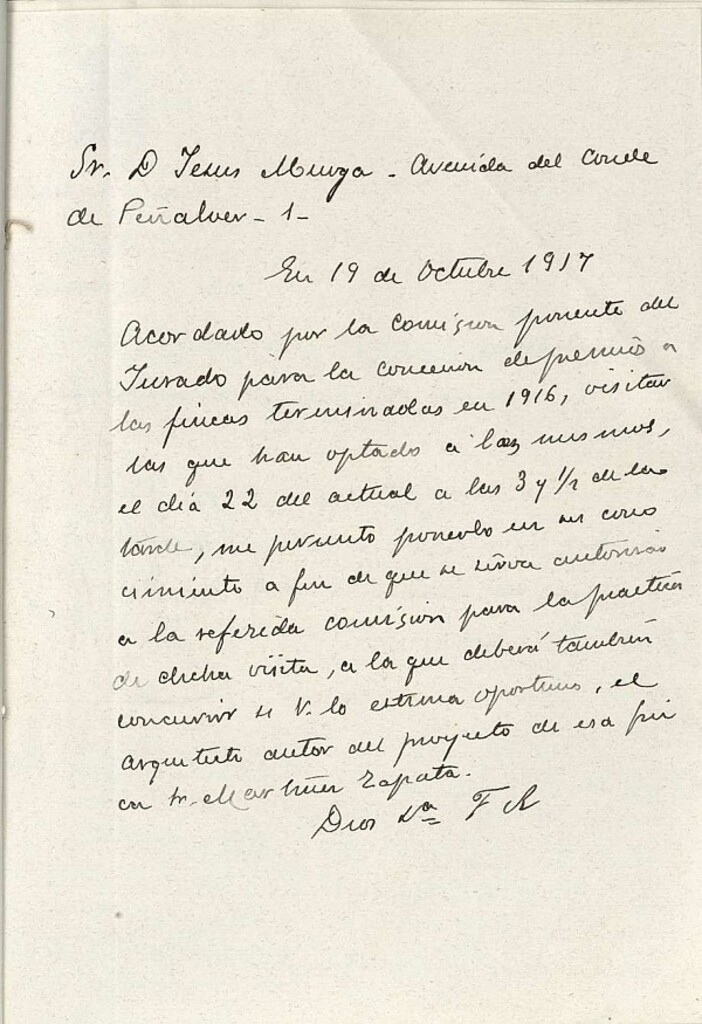 Sr. D Jesus Murga - Avenida del Conde
de Peñalver - 1 -
En 19 de Octubre 1917
Acordado por la Comision ponente del
Jurado para la concesion de premios a
las fincas terminadas en 1916, visitar
las que han optado a los mismos,
el dia 22 del actual a las 3 y 1/2 de la
tarde, me permito ponerlo en su cono
cimiento a fin de que se sirva autorizar
a la referida comision para la practica
de dicha visita, a la que deberá tambien
concurrir si V. lo estima oportuno, el
arquitecto autor del proyecto de esa fin
ca Sr. Martinez Zapata.
Dios &a F R